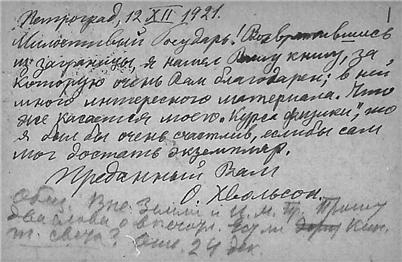 Петроград, 12 XII 1921.
1
Милостивый Государь! Возвратившись
из заграницы, я нашел Вашу книгу, за
которую очень Вам благодарен; в ней
много интересного материала. Что
же касается моего „Курса физики“, то
я был бы очень счастлив, если бы сам
мог достать экземпляр.
Преданный Вам
О. Хвольсон.
два слова
24 дек.